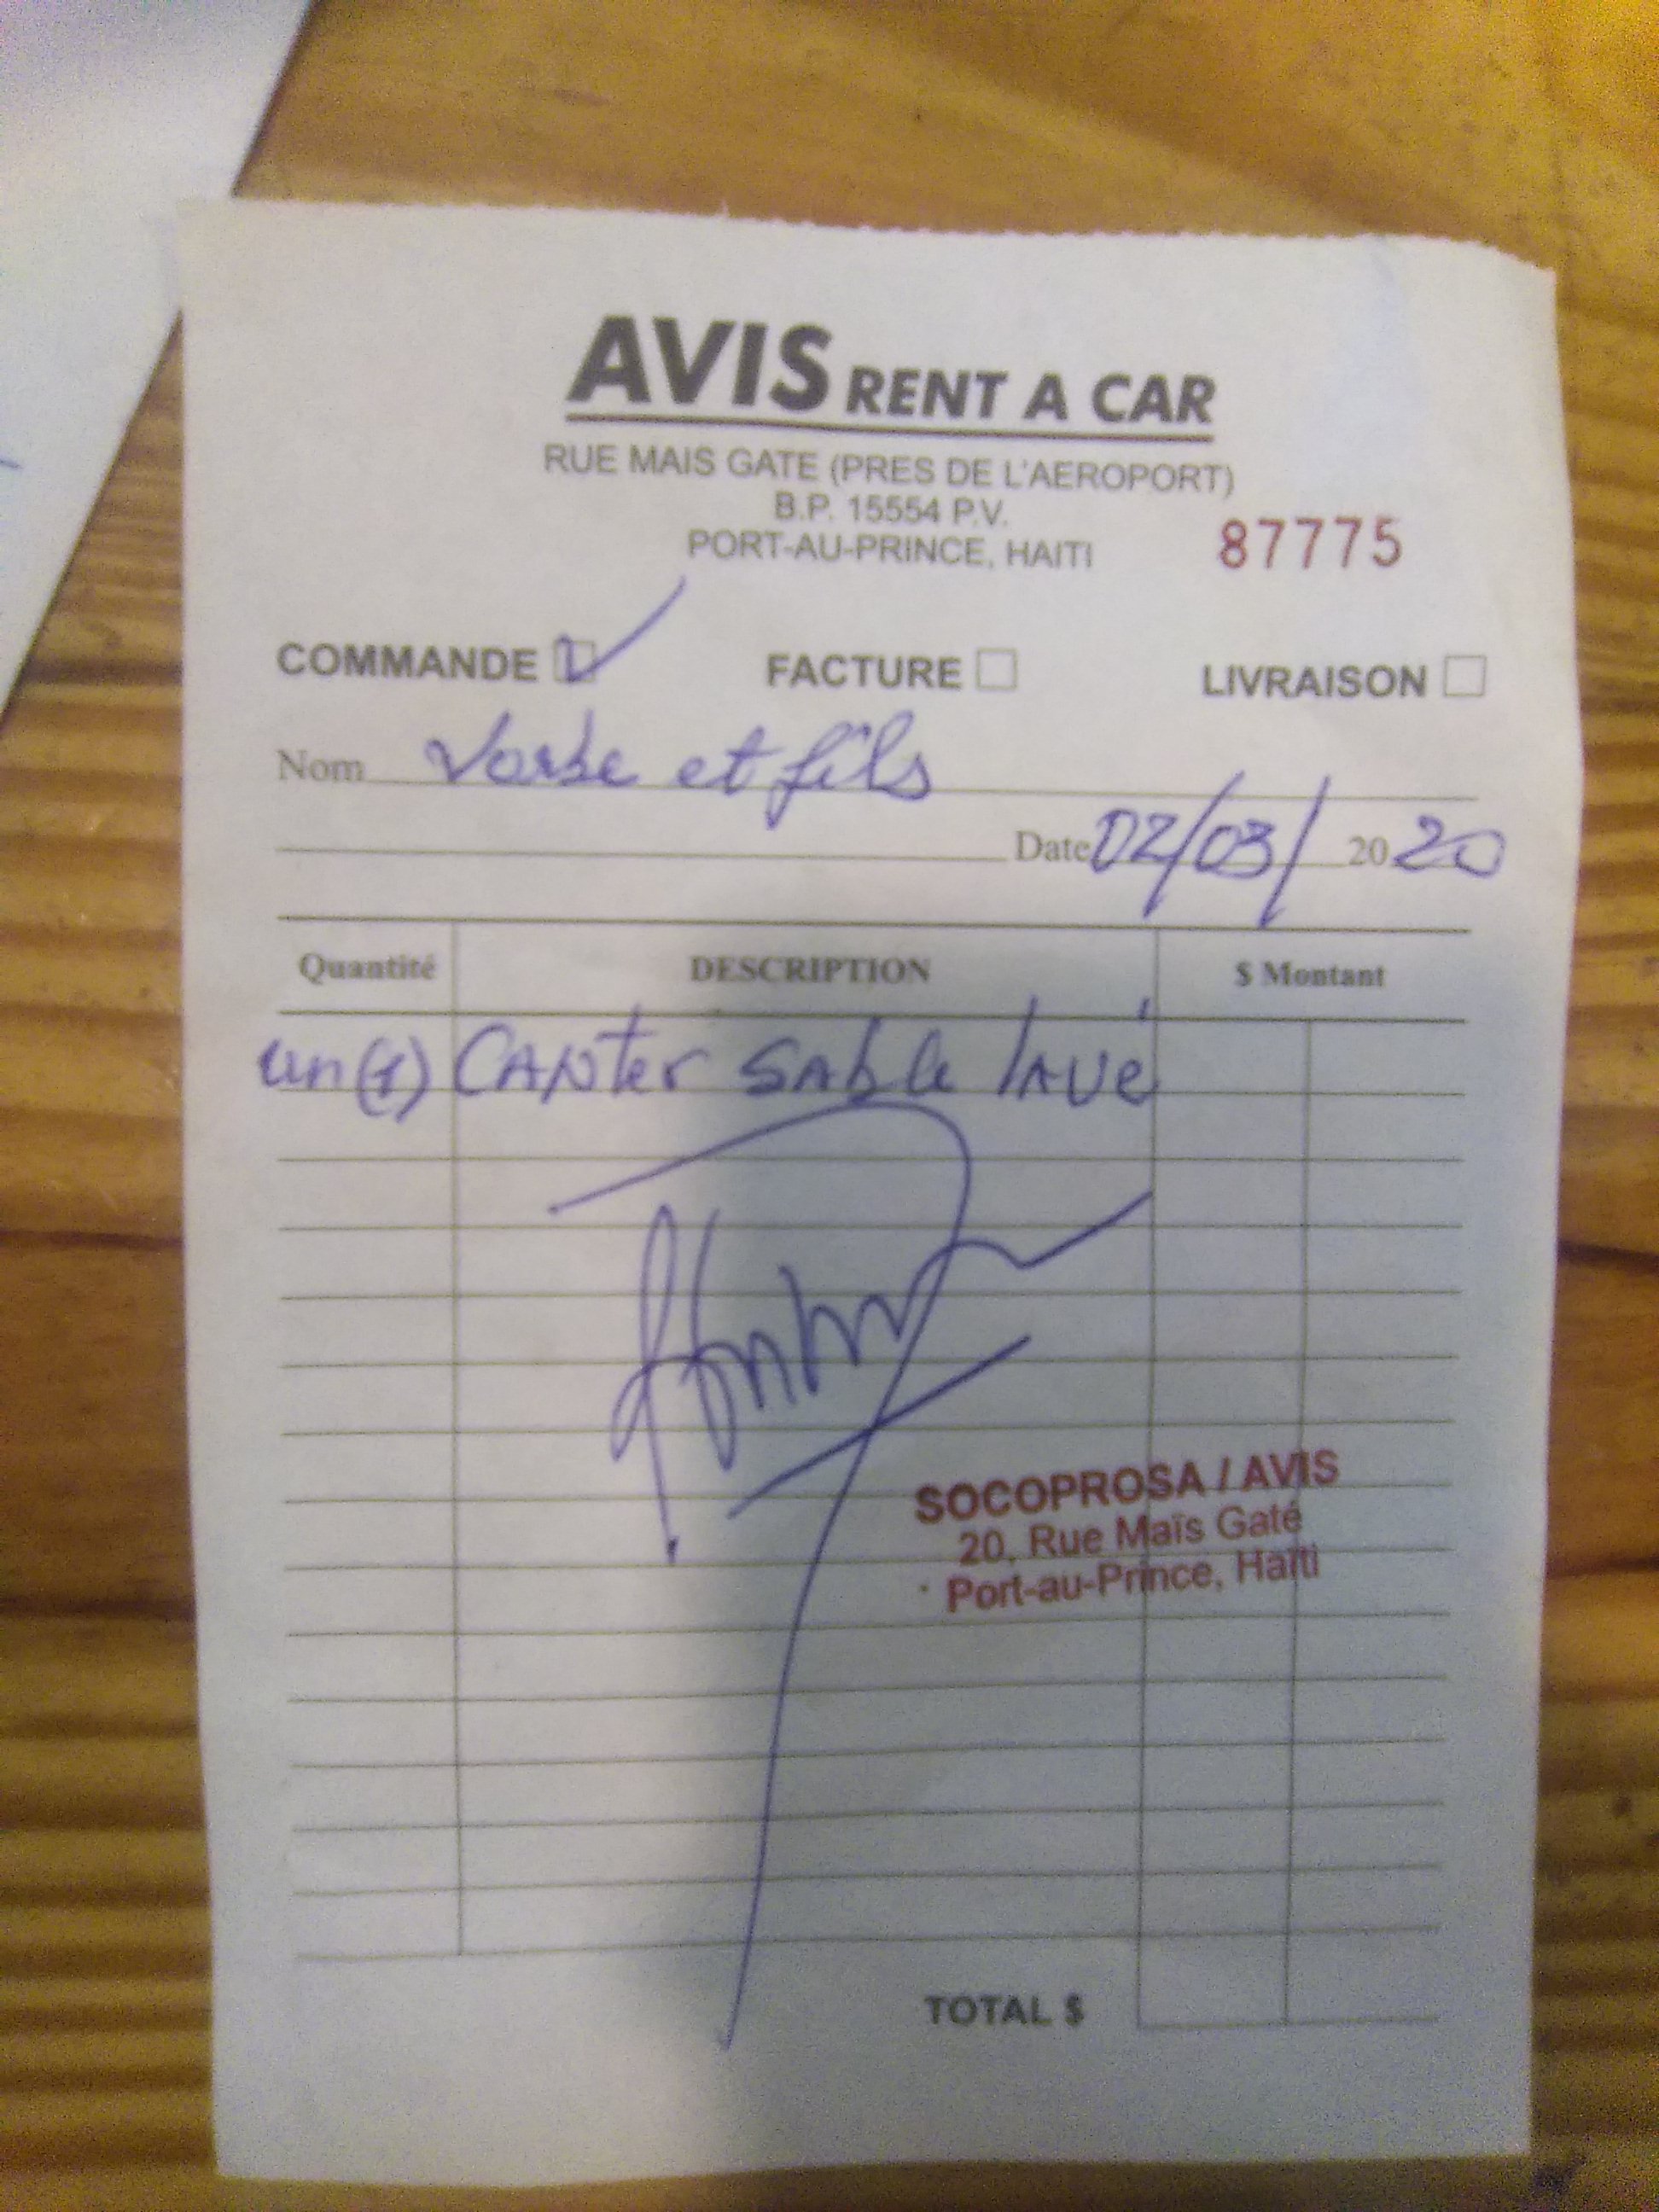 AVIS RENT A CAR
RUE MAIS GATE (PRES DE L'AEROPORT)
B.P. 15554 P.V.
PORT-AU-PRINCE, HAITI 87775
COMMANDE FACTURE LIVRAISON
Nom Vorbe et fils
Date 02/03/ 2020
Quantité DESCRIPTION $ Montant
un(1) CANter SAble lAvé
SOCOPROSA / AVIS
20, Rue Maïs Gaté
Port-au-Prince, Haïti
TOTAL $